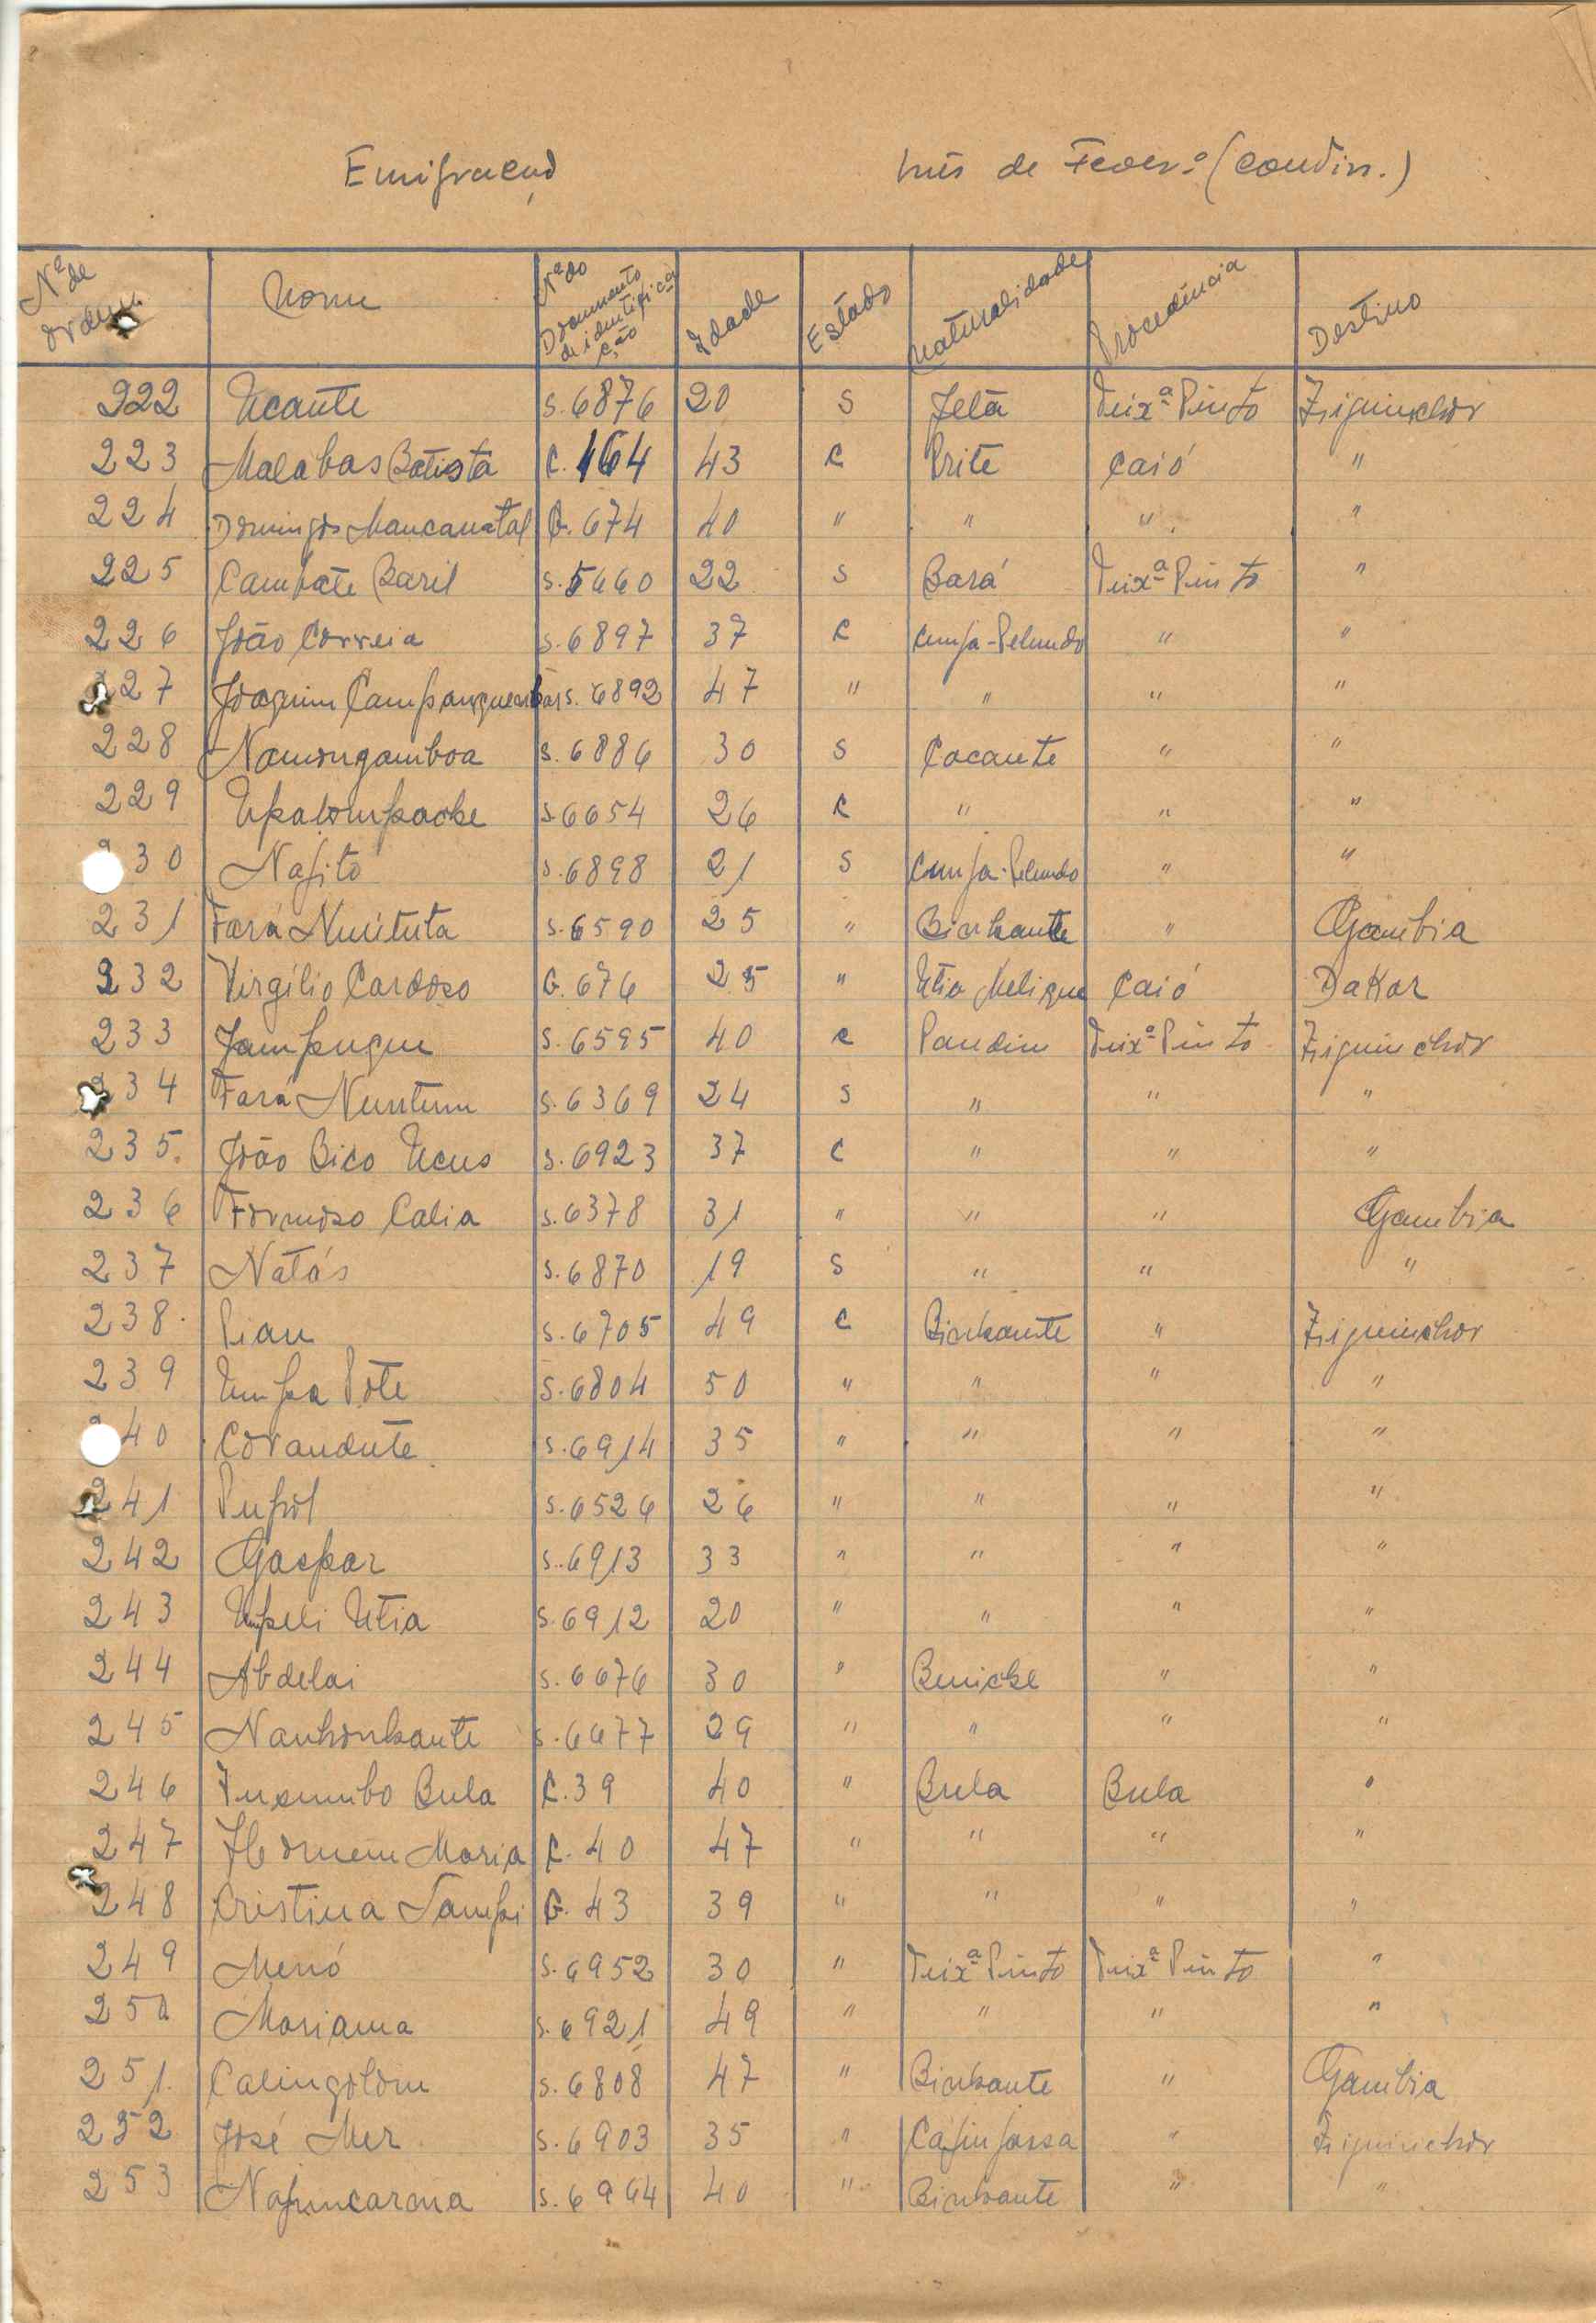 Emigração Mês de Fever.º (Contin.)
Nº de ordem Nome Nº do Documento de identificação Idade Estado Naturalidade Procedência Destino
222 Ucante S.6876 20 S Jetá Teixª Pinto Ziguinchor
223 Malabas Batista C.164 43 C Brite Caió "
224 Domingos Mancanatal G.674 40 " " " "
225 Cambate Baril S.5660 22 S Bará Teixª Pinto "
226 João Correia S.6897 37 C Cunfa-Pelundo " "
227 Joaquim S.6892 47 " " " "
228 Namongamboa S.6886 30 S Cacante " "
229 S.6654 26 C " " "
30 Nafito S.6898 21 S Cunfa-Pelundo " "
231 Fará S.6590 25 " Binhante " Gambia
232 Virgílio Cardoso G.676 25 " Utia Meligue Caió Dakar
233 Jampugue S.6595 40 C Pandim Teixª Pinto Ziguinchor
234 Fará Nuntum S.6369 24 S " " "
235. João Bico Ucus S.6923 37 C " " "
236 Formoso Calia S.6378 31 " " " Gambia
237 Natás S.6870 19 S " " "
238. Pian S.6705 49 C Binhante " Ziguinchor
239 Umpa Pote S.6804 50 " " " "
40 Corandute S.6914 35 " " " "
241 Pupol S.6526 26 " " " "
242 Gaspar S.6913 33 " " " "
243 Umpeli Utia S.6912 20 " " " "
244 Abdelai S.6676 30 " Beniche " "
245 Nanhonhante S.6677 29 " " " "
246 Bula C.39 40 " Bula Bula "
247 Homem Maria C.40 47 " " " "
248 Cristina Sampi G.43 39 " " " "
249 Menó S.6952 30 " Teixª Pinto Teixª Pinto "
250 Mariama S.6921 49 " " " "
251. Calingolom S.6808 47 " Binhante " Gambia
252 José Mer S.6903 35 " Cafinfassa " Ziguinchor
253 Nafuncarma S.6964 40 " Binhante " "